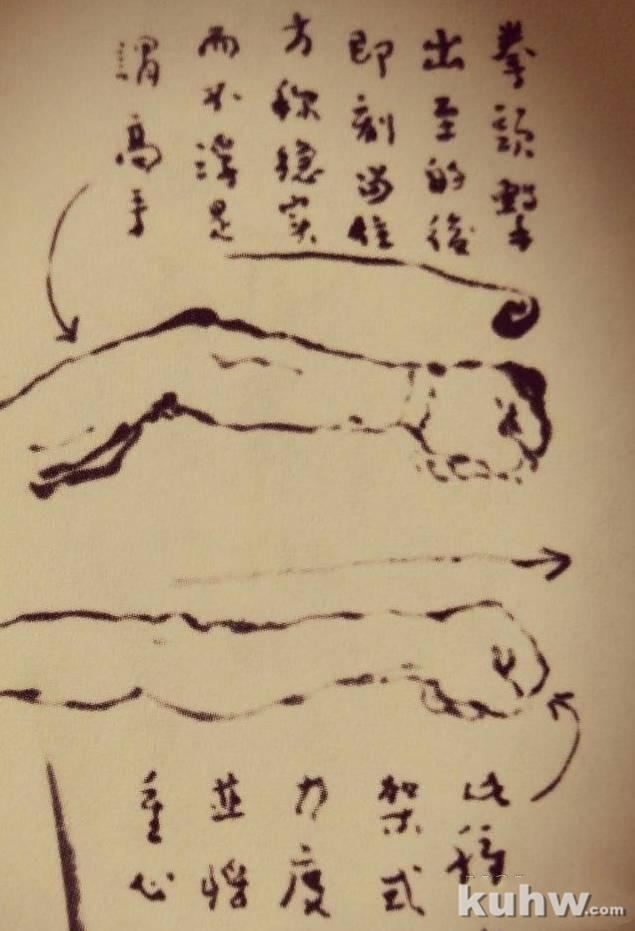 拳頭擊
出至的後
即刻留住
方称穩実
而不浮是
謂高手
此種
架式
力度
並
重心
kuhw.com